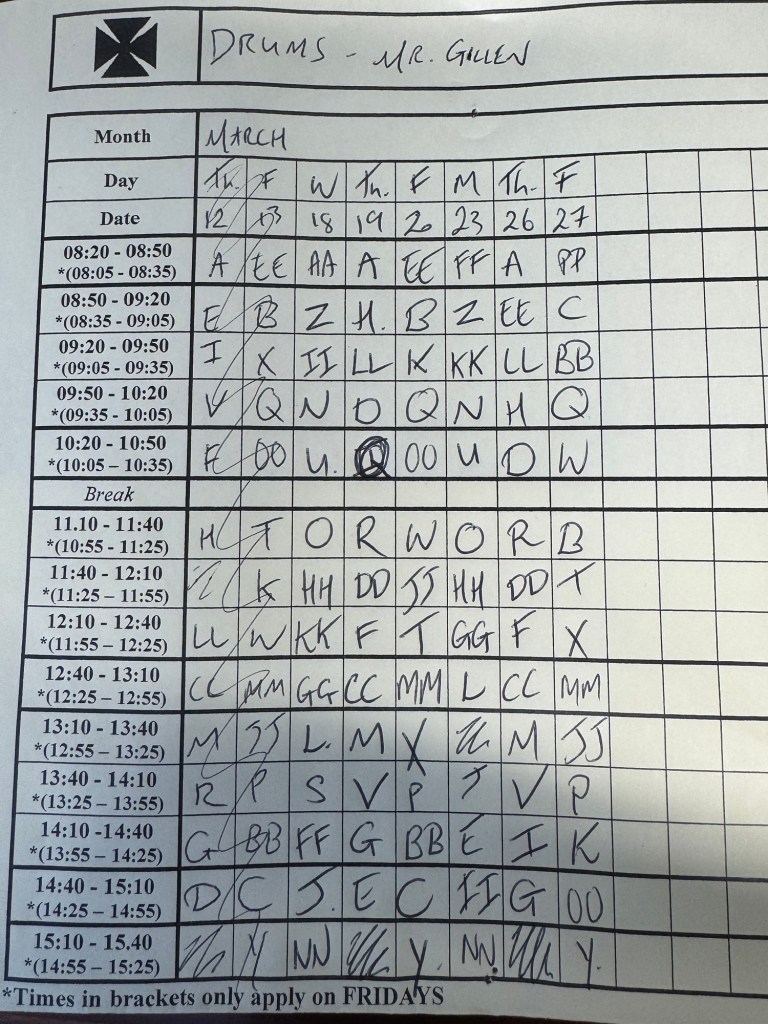 DRUMS - MR. GILLEN
Month MARCH
Day Th. F W Th. F M Th. F
Date 12 13 18 19 20 23 26 27
08:20 - 08:50 A EE AA A EE FF A PP
*(08:05 - 08:35)
08:50 - 09:20 E B Z H. B Z EE C
*(08:35 - 09:05)
09:20 - 09:50 I X II LL K KK LL BB
*(09:05 - 09:35)
09:50 - 10:20 V Q N D Q N H Q
*(09:35 - 10:05)
10:20 - 10:50 F OO U. OO U D W
*(10:05 – 10:35)
Break
11.10 - 11:40 H T O R W O R B
*(10:55 - 11:25)
11:40 - 12:10 K HH DD JJ HH DD T
*(11:25 – 11:55)
12:10 - 12:40 LL W KK F T GG F X
*(11:55 – 12:25)
12:40 - 13:10 CC MM GG CC MM L CC MM
*(12:25 – 12:55)
13:10 - 13:40 M JJ L. M X M JJ
*(12:55 – 13:25)
13:40 - 14:10 R P S V P J V P
*(13:25 – 13:55)
14:10 -14:40 G BB FF G BB E I K
*(13:55 – 14:25)
14:40 - 15:10 D C J. E C II G OO
*(14:25 – 14:55)
15:10 - 15.40 Y NN Y. NN. Y.
*(14:55 – 15:25)
*Times in brackets only apply on FRIDAYS